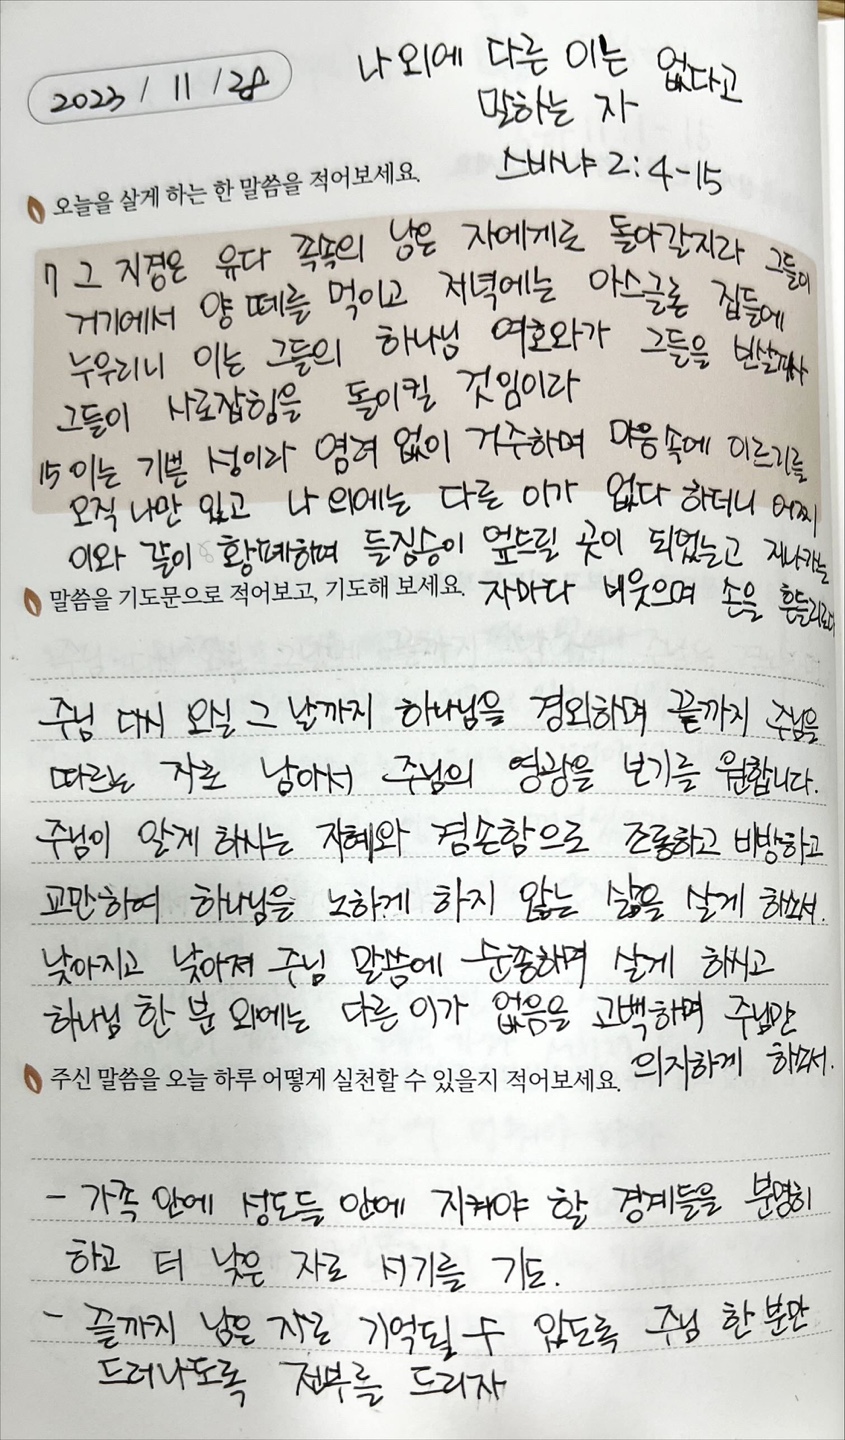 2023 / 11 / 28
나 외에 다른 이는 없다고
말하는 자
스바냐 2:4-15
오늘을 살게 하는 한 말씀을 적어보세요.
7 그 지경은 유다 족속의 남은 자에게로 돌아갈지라 그들이
거기에서 양 떼를 먹이고 저녁에는 아스글론 집들에
누우리니 이는 그들의 하나님 여호와가 그들을 보살피사
그들이 사로잡힘을 돌이킬 것임이라
15 이는 기쁜 성이라 염려 없이 거주하며 마음속에 이르기를
오직 나만 있고 나 외에는 다른 이가 없다 하더니 어찌
이와 같이 황폐하며 들짐승이 엎드릴 곳이 되었는고 지나가는
자마다 비웃으며 손을 흔들리로다
말씀을 기도문으로 적어보고, 기도해 보세요.
주님 다시 오실 그 날까지 하나님을 경외하며 끝까지 주님을
따르는 자로 남아서 주님의 영광을 보기를 원합니다.
주님이 알게 하시는 지혜와 겸손함으로 조롱하고 비방하고
교만하여 하나님을 노하게 하지 않는 삶을 살게 하소서.
낮아지고 낮아져 주님 말씀에 순종하며 살게 하시고
하나님 한 분 외에는 다른 이가 없음을 고백하며 주님만
의지하게 하소서.
주신 말씀을 오늘 하루 어떻게 실천할 수 있을지 적어보세요.
- 가족 안에 성도들 안에 지켜야 할 경계들을 분명히
하고 더 낮은 자로 서기를 기도.
- 끝까지 남은 자로 기억될 수 있도록 주님 한 분만
드러나도록 전부를 드리자